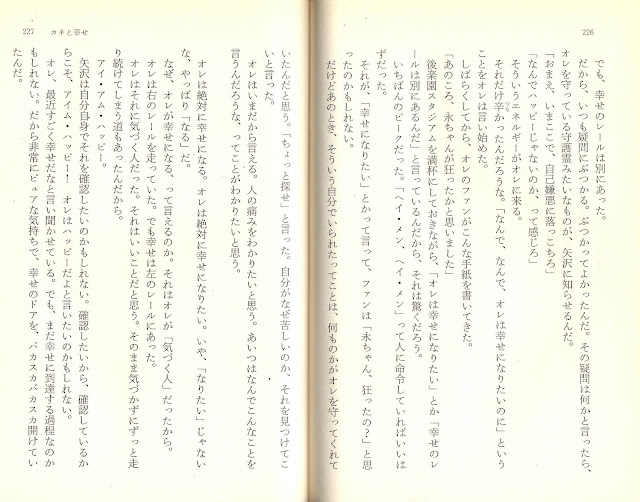 226
でも、幸せのレールは別にあった。
だから、いつも疑問にぶつかる。ぶつかってよかったんだ。その疑問は何かと言ったら、
オレを守っている守護霊みたいなものが、矢沢に知らせるんだ。
「おまえ、いまここで、自己嫌悪に落っこちろ」
「なんでハッピーじゃないのか、って感じろ」
そういうエネルギーがオレに来る。
それだけ辛かったんだろうな。「なんで、なんで、オレは幸せになりたいのに」という
ことをオレは言い始めた。
しばらくしてから、オレのファンがこんな手紙を書いてきた。
「あのころ、永ちゃんが狂ったかと思いました」
後楽園スタジアムを満杯にしておきながら、「オレは幸せになりたい」とか「幸せのレ
ールは別にあるんだ」と言っているんだから、それは驚くだろう。
いちばんのピークだった。「ヘイ・メン、ヘイ・メン」って人に命令していればいいは
ずだった。
それが、「幸せになりたい」とかって言って、ファンは「永ちゃん、狂ったの?」と思
ったのかもしれない。
だけどあのとき、そういう自分でいられたってことは、何ものかがオレを守ってくれて
227 カネと幸せ
いたんだと思う。「ちょっと探せ」と言った。自分がなぜ苦しいのか、それを見つけてこ
いと言った。
オレはいまだから言える。人の痛みをわかりたいと思う。あいつはなんでこんなことを
言うんだろうな、ってことがわかりたいと思う。
オレは絶対に幸せになる。オレは絶対に幸せになりたい。いや、「なりたい」じゃない
な、やっぱり「なる」だ。
なぜ、オレが幸せになる、って言えるのか。それはオレが「気づく人」だったから。
オレは右のレールを走っていた。でも幸せは左のレールにあった。
オレはそれに気づく人だった。それはいいことだと思う。そのまま気づかずにずっと走
り続けてしまう道もあったんだから。
アイ・アム・ハッピー。
矢沢は自分自身でそれを確認したいのかもしれない。確認したいから、確認しているか
らこそ、アイム・ハッピー! オレはハッピーだよと言いたいのかもしれない。
オレ、最近すごく幸せだなと言い聞かせている。でも、まだ幸せに到達する過程なのか
もしれない。だから非常にピュアな気持ちで、幸せのドアを、バカスカバカスカ開けてい
たんだ。